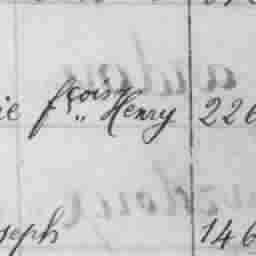 ie fçois Henry 226
seph 146